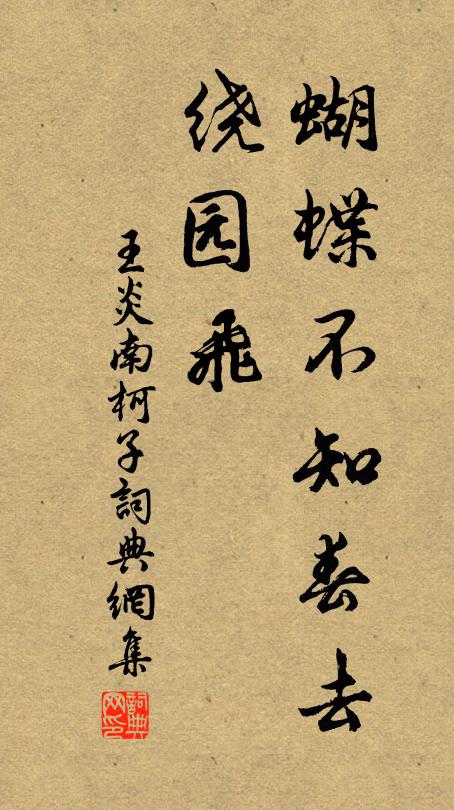 蝴蝶不知春去
绕园飞
王炎南柯子詞典網集
詞典网印